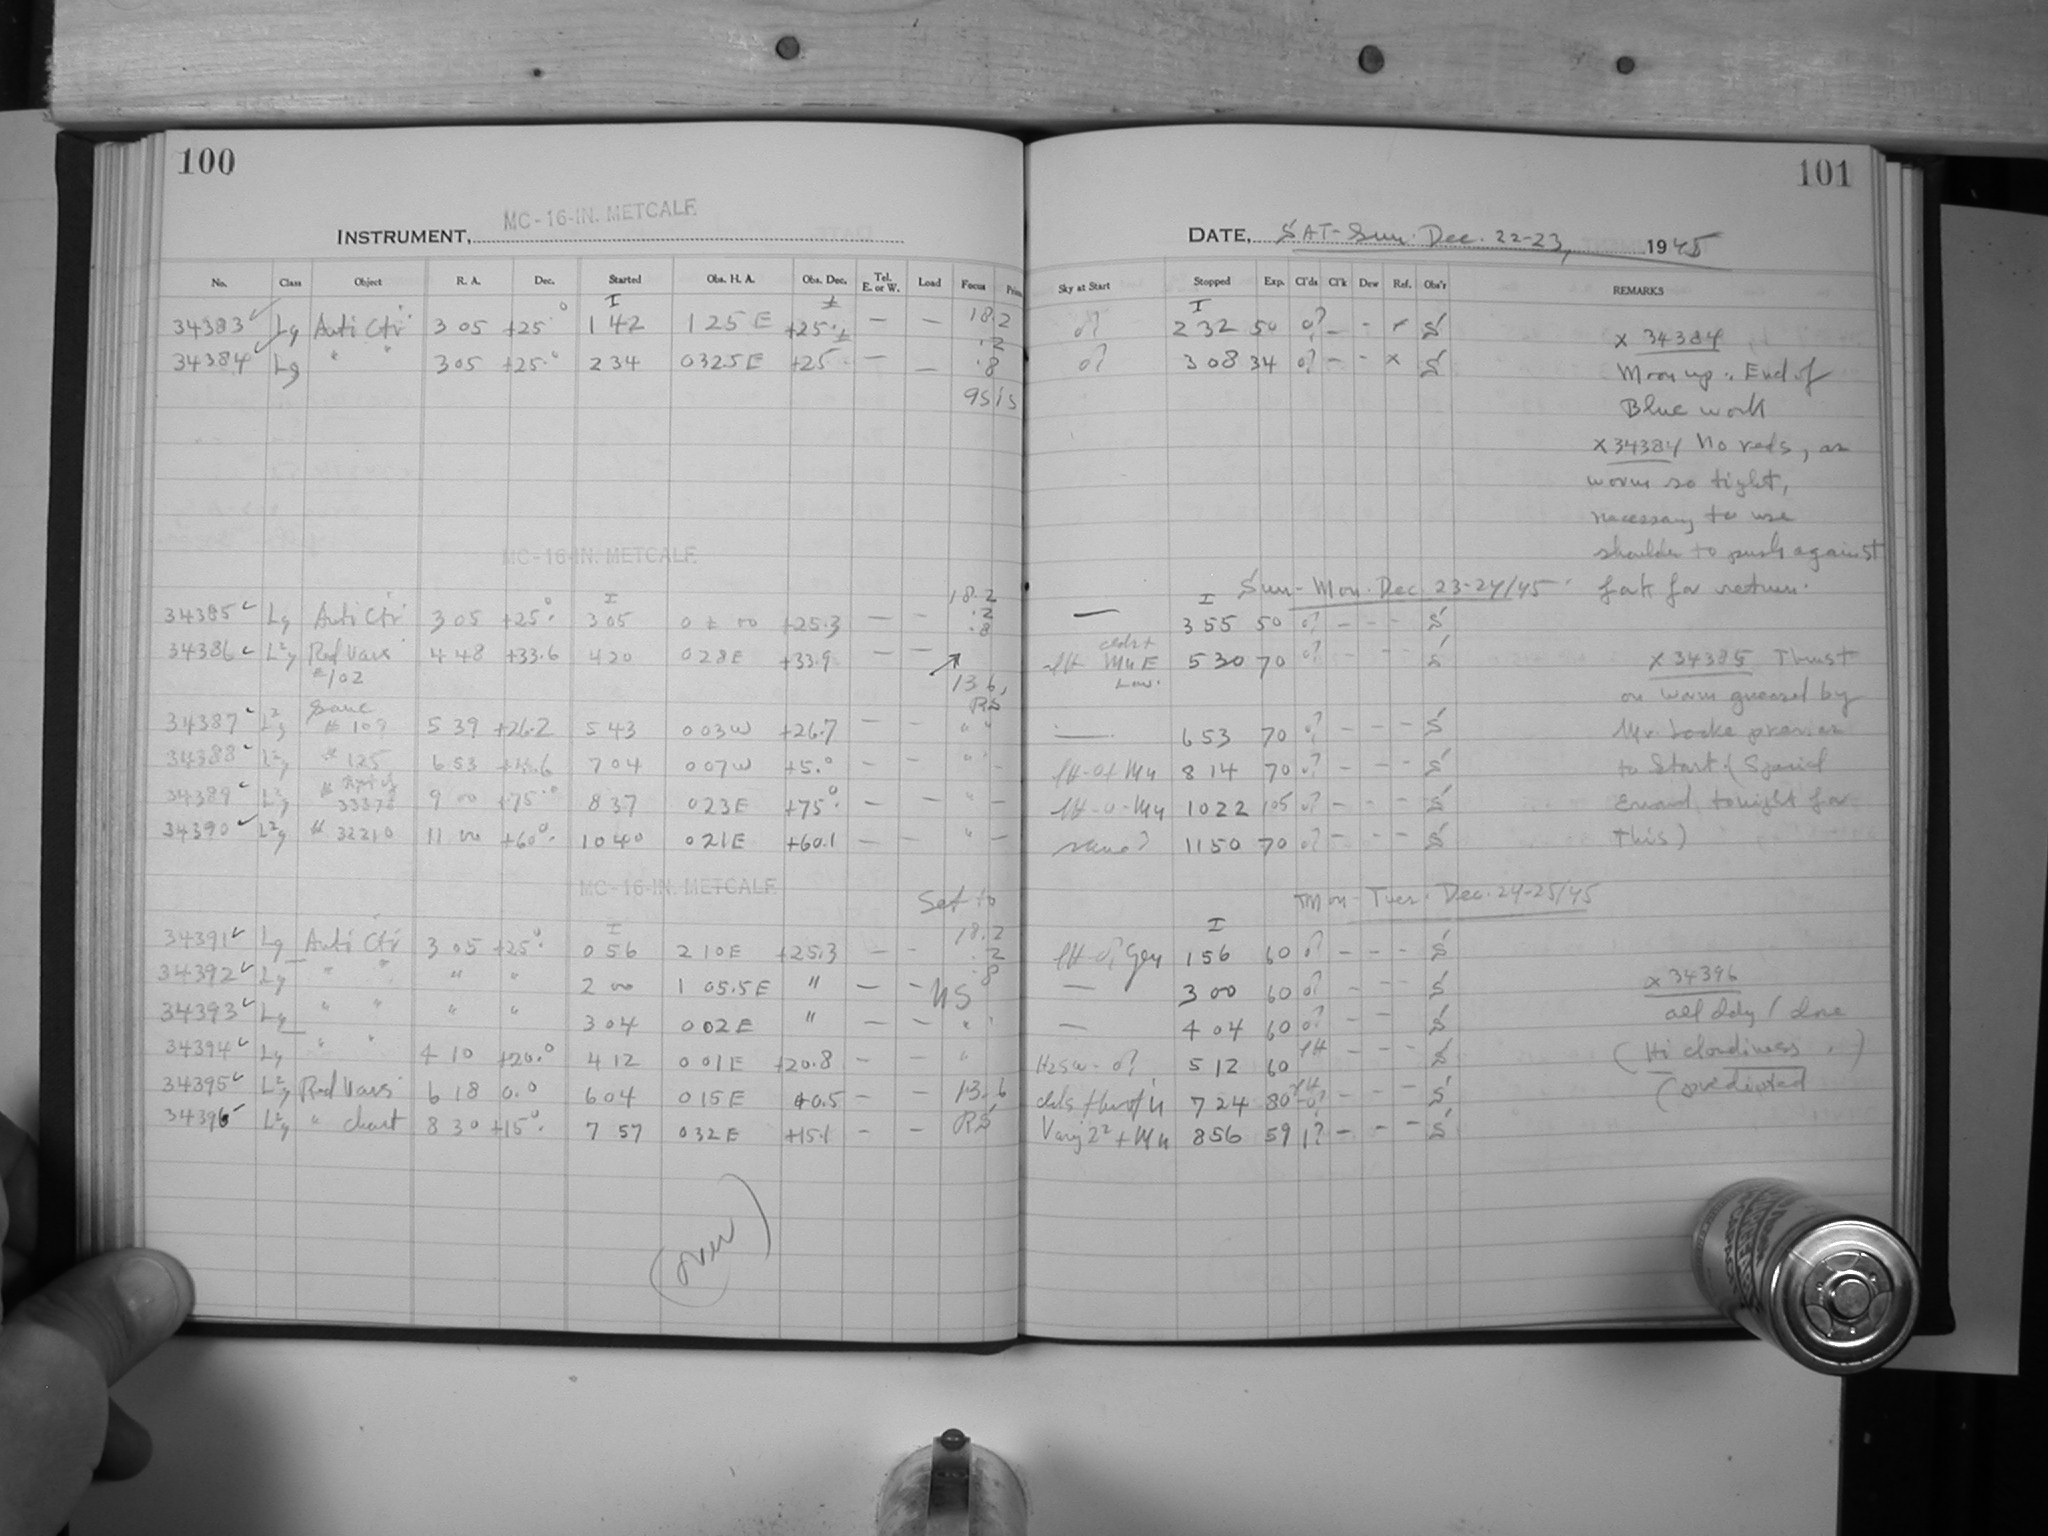 100
101
MC-16-IN. METCALF
INSTRUMENT,
DATE, SAT-Sun. Dec. 22-23, 1945
No. Class Object R. A. Dec. Started Obs. H. A. Obs. Dec. Tel. E. or W. Load Focus
Sky at Start Stopped Exp. Cl'ds Cl'k Dew Ref. Obs'r REMARKS
34383 Lg Anti Ctr 3 05 +25° 1 42 1 25 E +25 — — 18.2 0? 2 32 50 0? - - S
34384 Lg " " 3 05 +25° 2 34 0 32.5 E +25 — — 0? 3 08 34 0? - - x S
x 34384
Moon up. End of
Blue work
x 34384 No reds, as
worm so tight,
necessary to use
shoulder to push against
fork for return.
MC-16-IN. METCALF
Sun-Mon. Dec. 23-24/45
34385 Lg Anti Ctr 3 05 +25° 3 05 0 ± 00 +25.3 — — 18.2 .2 .8 — 3 55 50 0? - - - S
34386 L²g Red Vars #102 4 48 +33.6 4 20 0 28 E +33.9 — — 13.6, RS 5 30 70 0? - - - S
34387 L²g Same #109 5 39 +26.2 5 43 0 03 W +26.7 — — " " — 6 53 70 0? - - - S
34388 L²g #125 6 53 7 04 0 07 W +5.0 — — " 8 14 70 0? - - - S
34389 L²g 9 00 +75° 8 37 0 23 E +75° — — " 10 22 105 0? - - - S
34390 L²g # 33210 11 00 +60° 10 40 0 21 E +60.1 — — " same? 11 50 70 0? - - - S
x 34385 Thrust
on worm greased by
Mr. Locke previous
to Start (Special
Errand tonight for
this)
MC-16-IN. METCALF
Set to
Mon-Tues. Dec. 24-25/45
34391 Lg Anti Ctr 3 05 +25° 0 56 2 10 E +25.3 — — 18.2 .2 .8 1 56 60 0? - - - S
34392 Lg " " " " 2 00 1 05.5 E " — — — 3 00 60 0? - - - S
34393 Lg " " " " 3 04 0 02 E " — — " — 4 04 60 0? - - S
34394 Lg " " 4 10 +20.0 4 12 0 01 E +20.8 — — " 5 12 60 - - - S
34395 L²g Red Vars 6 18 0.0 6 04 0 15 E +0.5 — — 13.6 7 24 80 - - - S
34396 L²g " chart 8 30 +15° 7 57 0 32 E +15.1 — — RS 8 56 59 1? - - - S
x 34396
(Hi cloudiness
(predicted
(over)